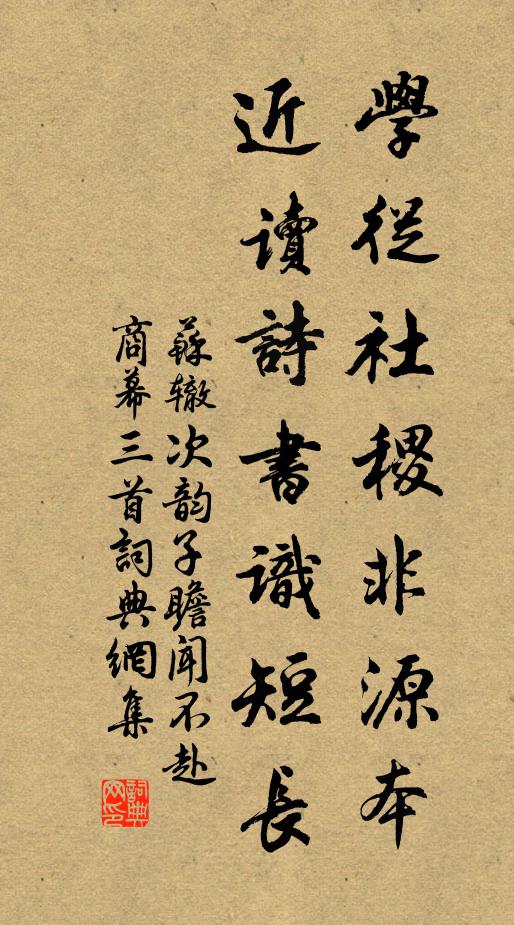 學從社稷非源本
近讀詩書識短長
蘇辙次韵子瞻聞不赴
商幕三首詞典網集
詞典网印